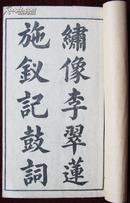 繡像李翠蓮
施釵記鼓詞